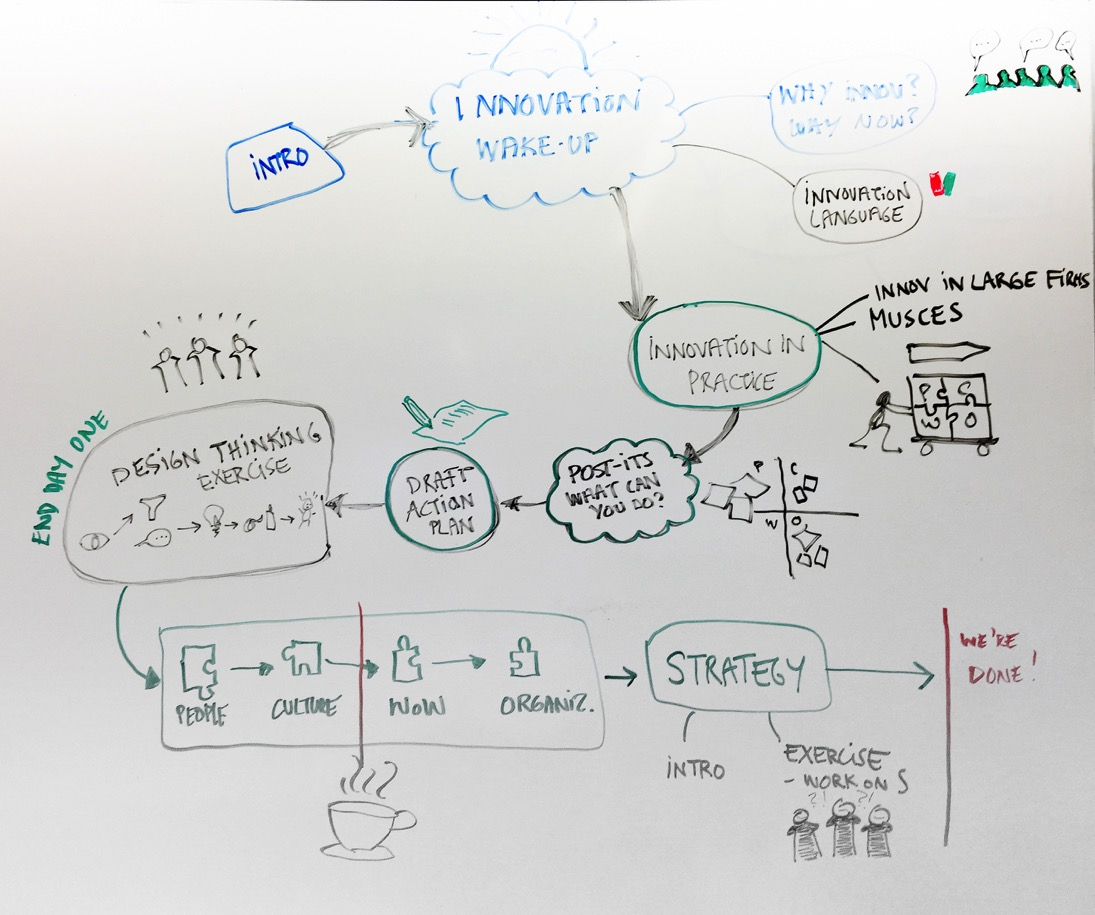 INTRO
INNOVATION
WAKE-UP
WHY INNOV?
WHY NOW?
INNOVATION
LANGUAGE
INNOVATION IN
PRACTICE
INNOV IN LARGE FIRMS
MUSCES
P C
W O
POST-ITS
WHAT CAN
YOU DO?
P C
W O
DRAFT
ACTION
PLAN
END DAY ONE
DESIGN THINKING
EXERCISE
PEOPLE
CULTURE
WOW
ORGANIZ.
STRATEGY
INTRO
EXERCISE
- WORK ON S
?! ?!
WE'RE
DONE!